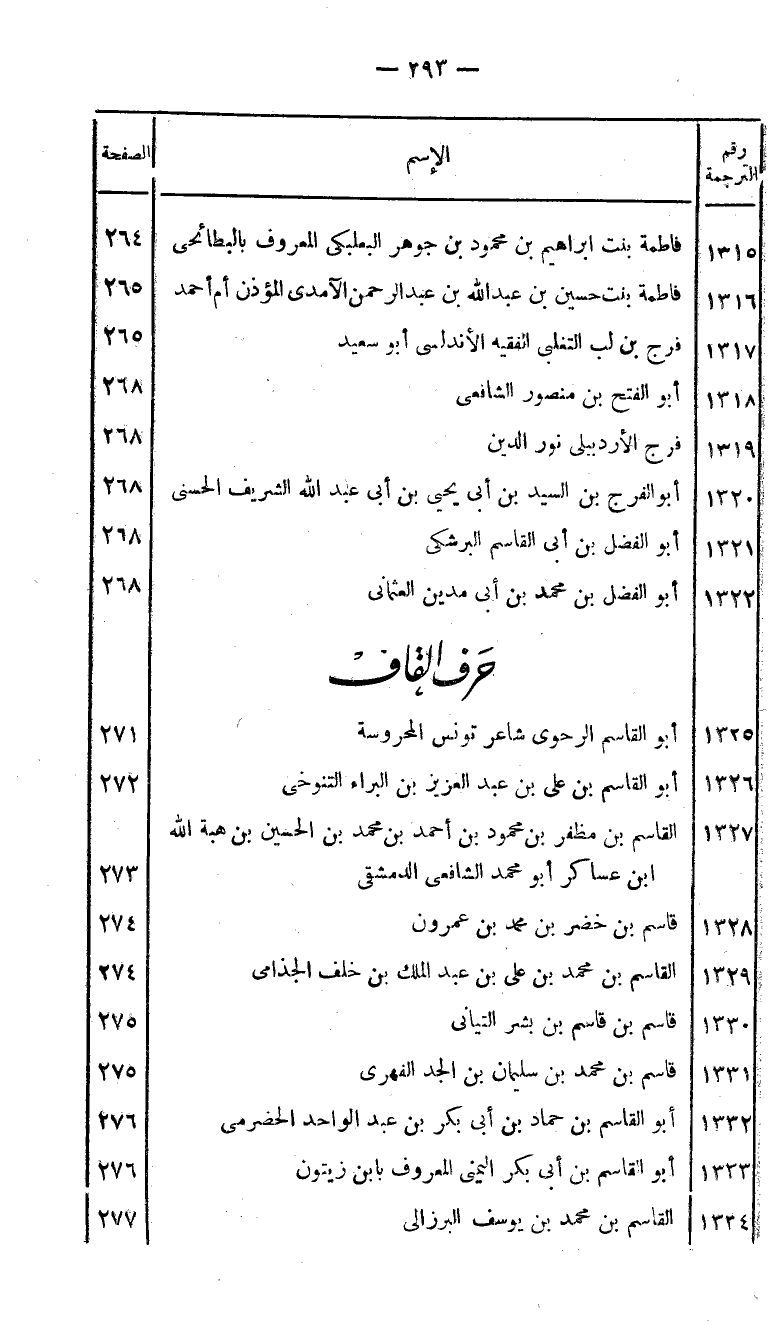 — ٢٩٣ —
رقم الترجمة الإسم الصفحة
١٣١٥ فاطمة بنت ابراهيم بن محمود بن جوهر البعلبكى المعروف بالبطائحى ٢٦٤
١٣١٦ فاطمة بنت حسين بن عبدالله بن عبدالرحمن الآمدى المؤذن أم أحمد ٢٦٥
١٣١٧ فرج بن لب التغلبى الفقيه الأندلسى أبو سعيد ٢٦٥
١٣١٨ أبو الفتح بن منصور الشافعى ٢٦٨
١٣١٩ فرج الأردبيلى نور الدين ٢٦٨
١٣٢٠ أبو الفرج بن السيد بن أبي يحيى بن أبى عبد الله الشريف الحسنى ٢٦٨
١٣٢١ أبو الفضل بن أبى القاسم البرشكى ٢٦٨
١٣٢٢ أبو الفضل بن محمد بن أبى مدين العثمانى ٢٦٨
حرف القاف
١٣٢٥ أبو القاسم الرحوى شاعر تونس المحروسة ٢٧١
١٣٢٦ أبو القاسم بن على بن عبد العزيز بن البراء التنوخى ٢٧٢
١٣٢٧ القاسم بن مظفر بن محمود بن أحمد بن محمد بن الحسين بن هبة الله
ابن عساكر أبو محمد الشافعى الدمشقى ٢٧٣
١٣٢٨ قاسم بن خضر بن محمد بن عمرون ٢٧٤
١٣٢٩ القاسم بن محمد بن على بن عبد الملك بن خلف الجذامى ٢٧٤
١٣٣٠ قاسم بن قاسم بن بشر التيانى ٢٧٥
١٣٣١ قاسم بن محمد بن سليمان بن الجد الفهرى ٢٧٥
١٣٣٢ أبو القاسم بن حماد بن أبى بكر بن عبد الواحد الحضرمى ٢٧٦
١٣٣٣ أبو القاسم بن أبى بكر اليمنى المعروف بابن زيتون ٢٧٦
١٣٣٤ القاسم بن محمد بن يوسف البرزالى ٢٧٧